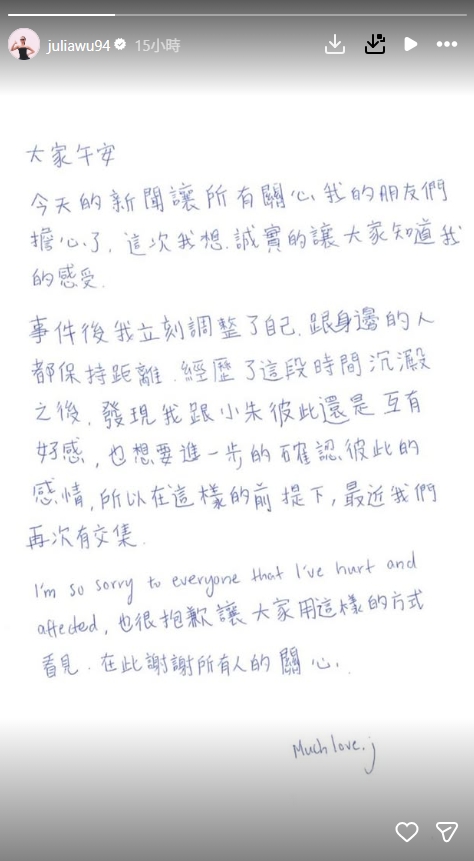 juliawu94 15小時
大家午安
今天的新聞讓所有關心我的朋友們
擔心了, 這次我想誠實的讓大家知道我
的感受.
事件後我立刻調整了自己. 跟身邊的人
都保持距離. 經歷了這段時間沉澱
之後, 發現我跟小朱彼此還是互有
好感, 也想要進一步的確認彼此的
感情, 所以在這樣的前提下, 最近我們
再次有交集.
I'm so sorry to everyone that I've hurt and
affected, 也很抱歉讓大家用這樣的方式
看見. 在此謝謝所有人的關心.
Much love. j